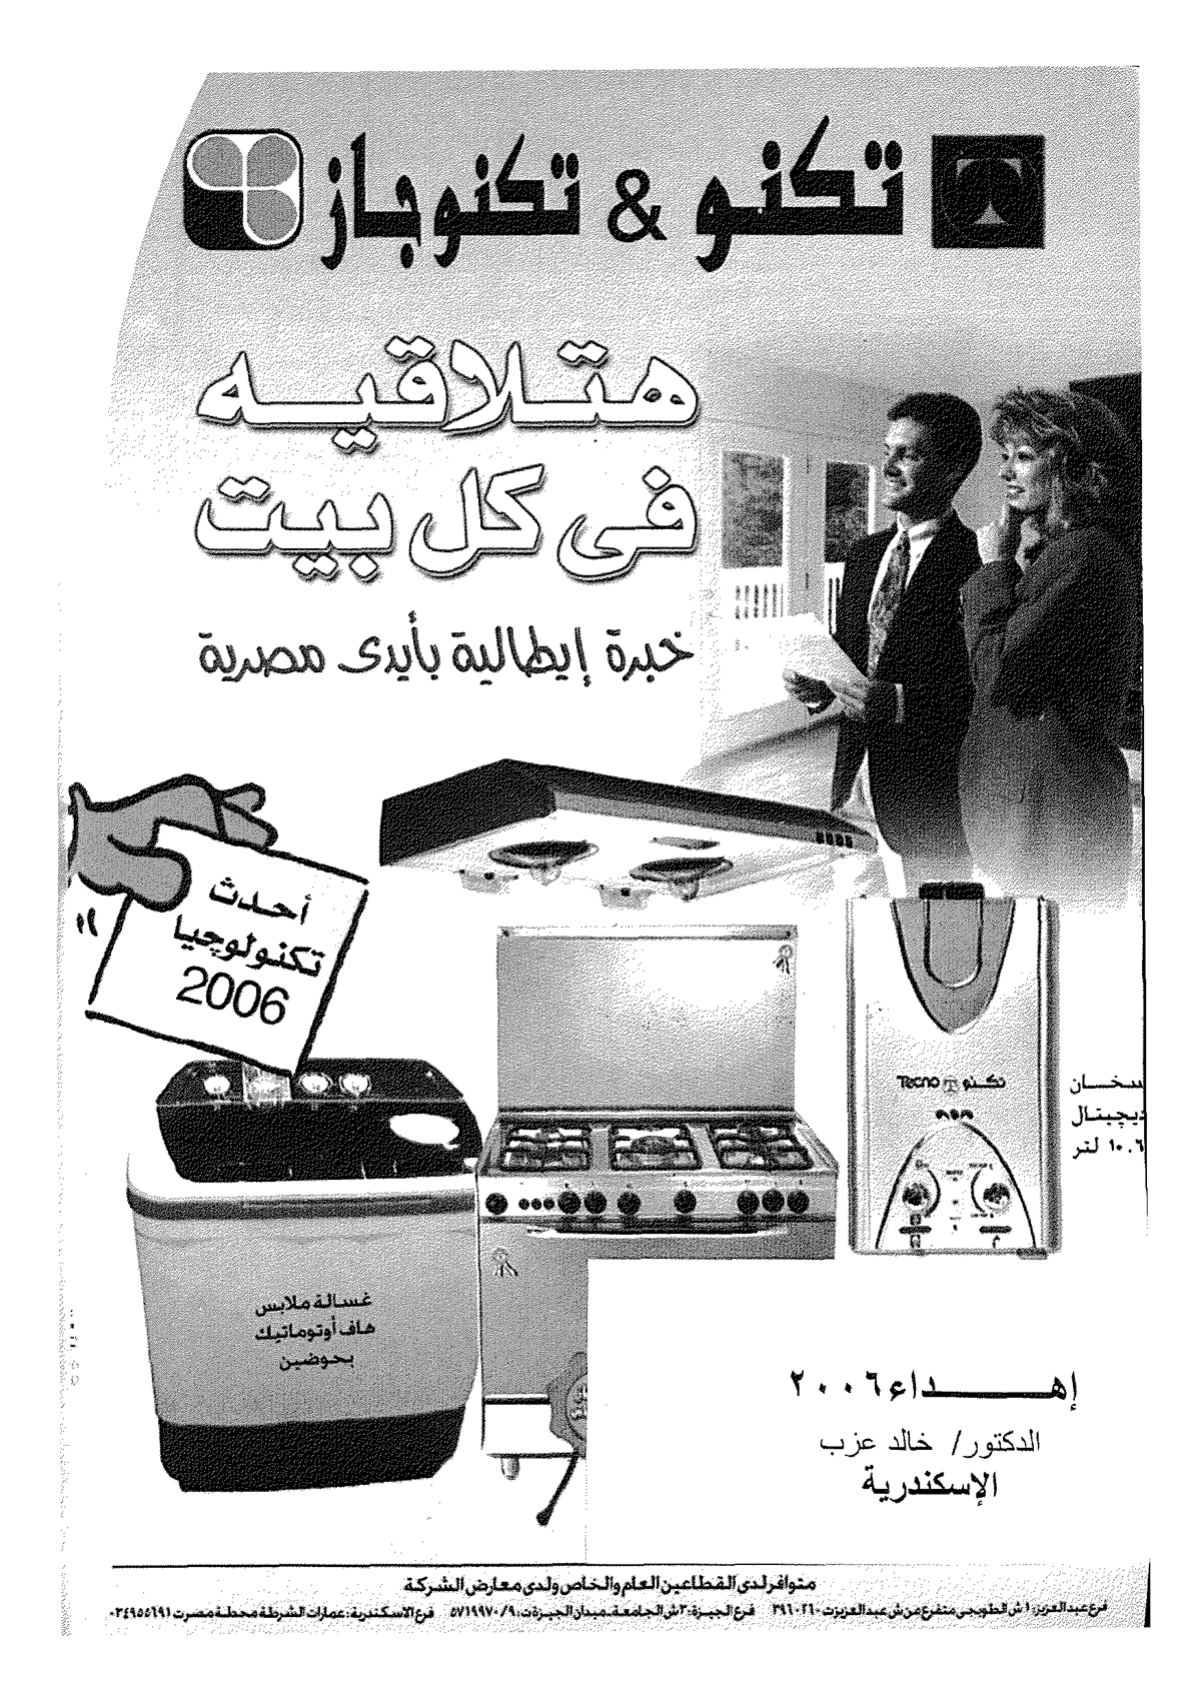 تكنو & تكنوجاز
هتلاقيه
فى كل بيت
خبرة إيطالية بأيدى مصرية
أحدث
تكنولوجيا
2006
TECNO تكنو
سخان
ديچيتال
١٠.٦ لتر
غسالة ملابس
هاف أوتوماتيك
بحوضين
إهداء ٢٠٠٦
الدكتور/ خالد عزب
الإسكندرية
متوافر لدى القطاعين العام والخاص ولدى معارض الشركة
فرع عبدالعزيز: ١ ش الطوبجى متفرع من ش عبدالعزيز ت: ٣٩٦٠٢٦٠ فرع الجيزة: ٣ ش الجامعة ـ ميدان الجيزة ت: ٥٧١٩٩٧٠/٩ فرع الاسكندرية: عمارات الشرطة محطة مصر ت ٠٣٤٩٥٥٦٩١